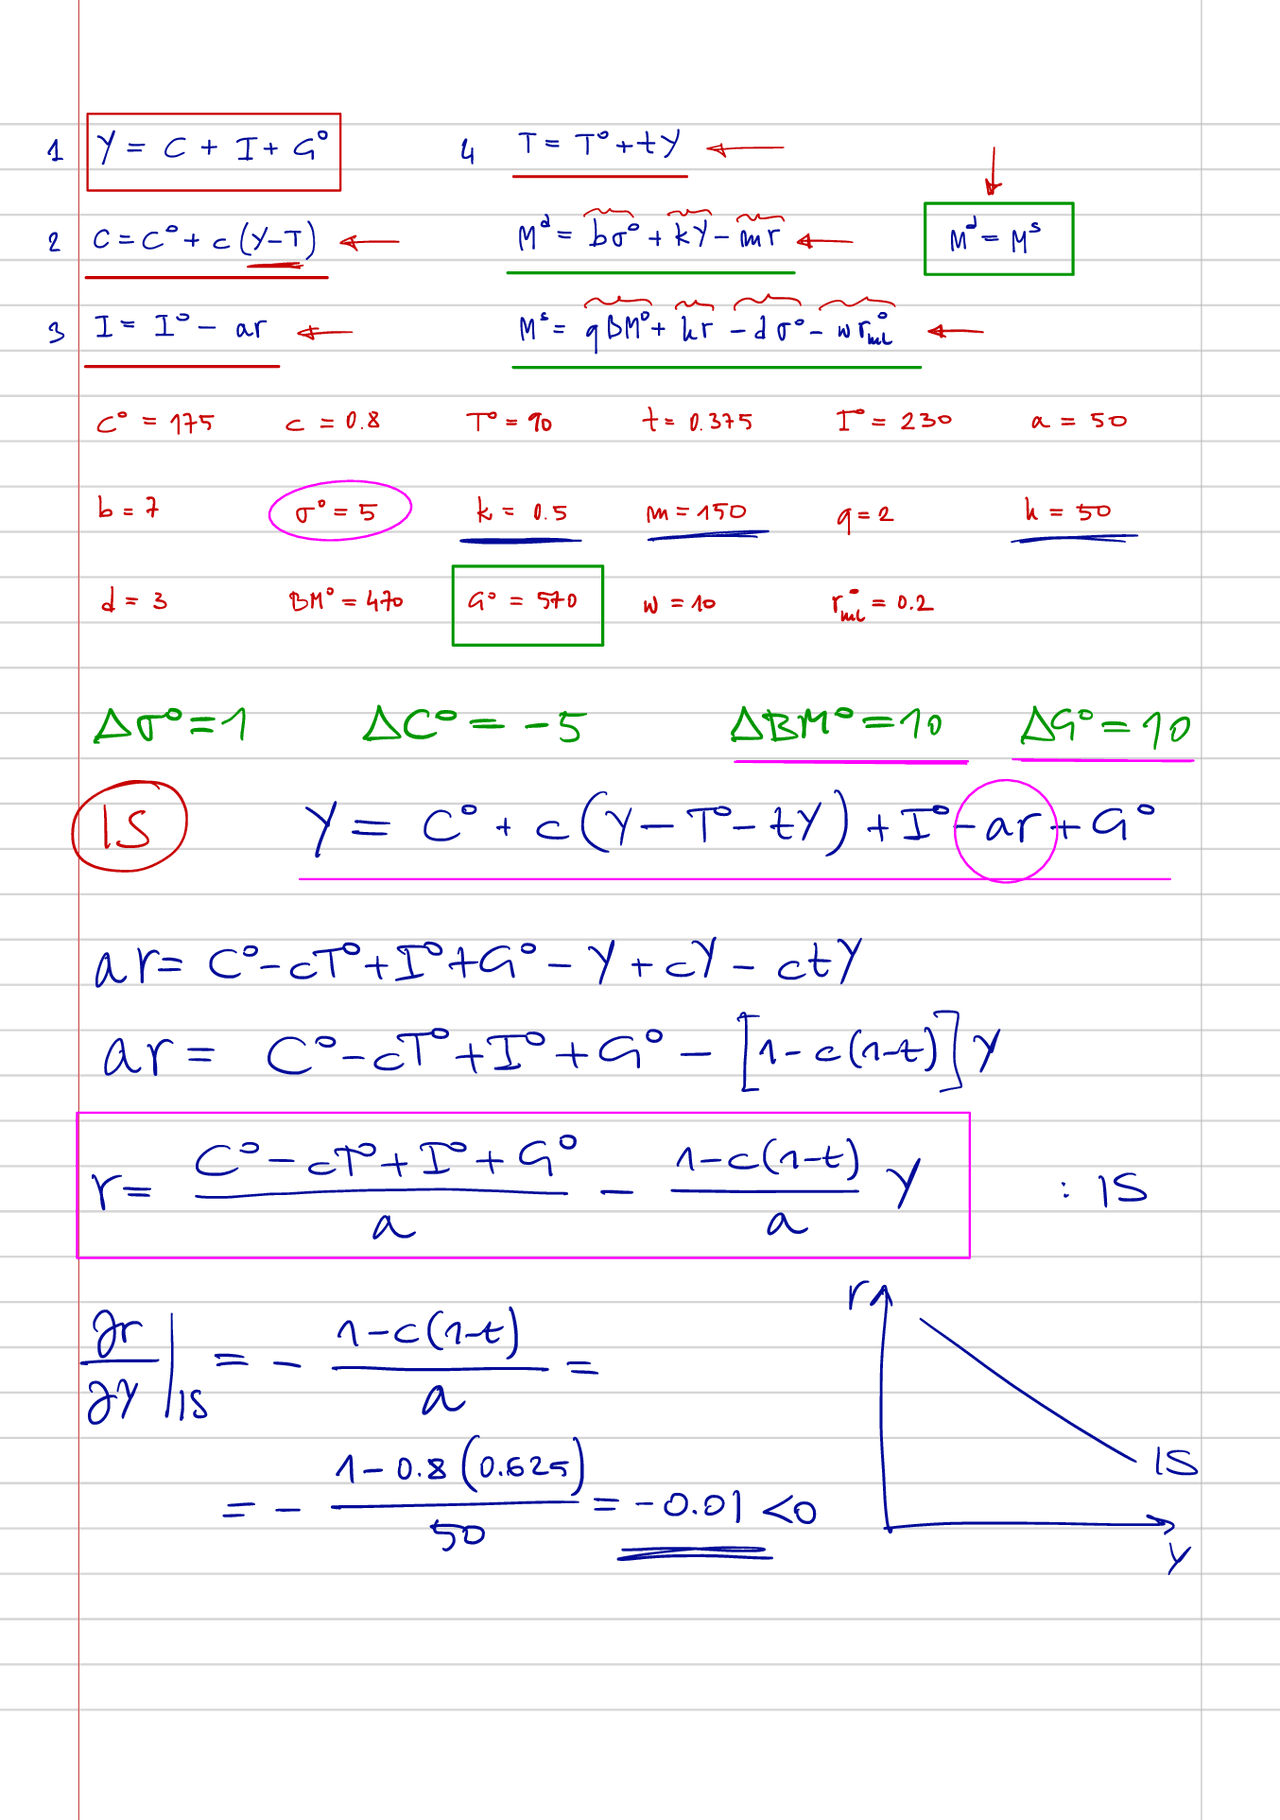 1 Y = C + I + G° 4 T = T° + tY
2 C = C° + c(Y-T) Mᵈ = bσ° + kY - mr Mᵈ = Mˢ
3 I = I° - ar Mˢ = qBM° + hr - dσ° - wr°ₘᵢₙ
C° = 175 c = 0.8 T° = 90 t = 0.375 I° = 230 a = 50
b = 7 σ° = 5 k = 0.5 m = 150 q = 2 h = 50
d = 3 BM° = 470 G° = 570 w = 10 r°ₘᵢₙ = 0.2
Δσ° = 1 ΔC° = -5 ΔBM° = 10 ΔG° = 10
IS Y = C° + c(Y - T° - tY) + I° - ar + G°
ar = C° - cT° + I° + G° - Y + cY - ctY
ar = C° - cT° + I° + G° - [1 - c(1-t)] Y
r = (C° - cT° + I° + G°)/a - (1 - c(1-t))/a Y : IS
∂r/∂Y |IS = - (1 - c(1-t))/a =
= - (1 - 0.8(0.625))/50 = -0.01 < 0
r
IS
Y